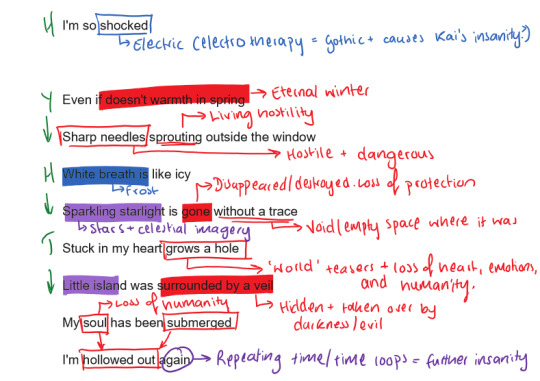 H I'm so shocked
Electric (electrotherapy = Gothic + causes Kai's insanity?)
Y Even if doesn't warmth in spring
Eternal winter
Living hostility
Sharp needles sprouting outside the window
Hostile + dangerous
H White breath is like icy
Frost
Disappeared/destroyed. Loss of protection
Sparkling starlight is gone without a trace
Stars + celestial imagery
Void/empty space where it was
T Stuck in my heart grows a hole
'World' teasers + loss of heart, emotion, and humanity.
Little island was surrounded by a veil
Loss of humanity
Hidden + taken over by darkness/evil
My soul has been submerged
I'm hollowed out again
Repeating time/time loops = further insanity